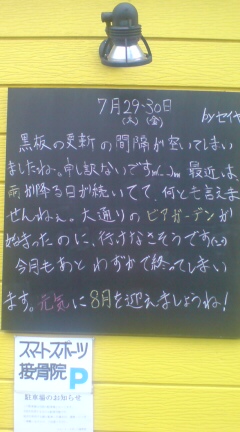 7月29-30日
(火) (金)
byセイヤ
黒板の更新の間隔が空いてしまい
ましたね。申し訳ないですm(_ _)m 最近は、
雨が降る日が続いてて、何とも言えま
せんねぇ。大通りのビアガーデンが
始まったのに、行けなさそうです(-_-)
今月もあとわずかで終ってしまい
ます。元気に8月を迎えましょうね!
スマートスポーツ
接骨院 P
駐車場のお知らせ